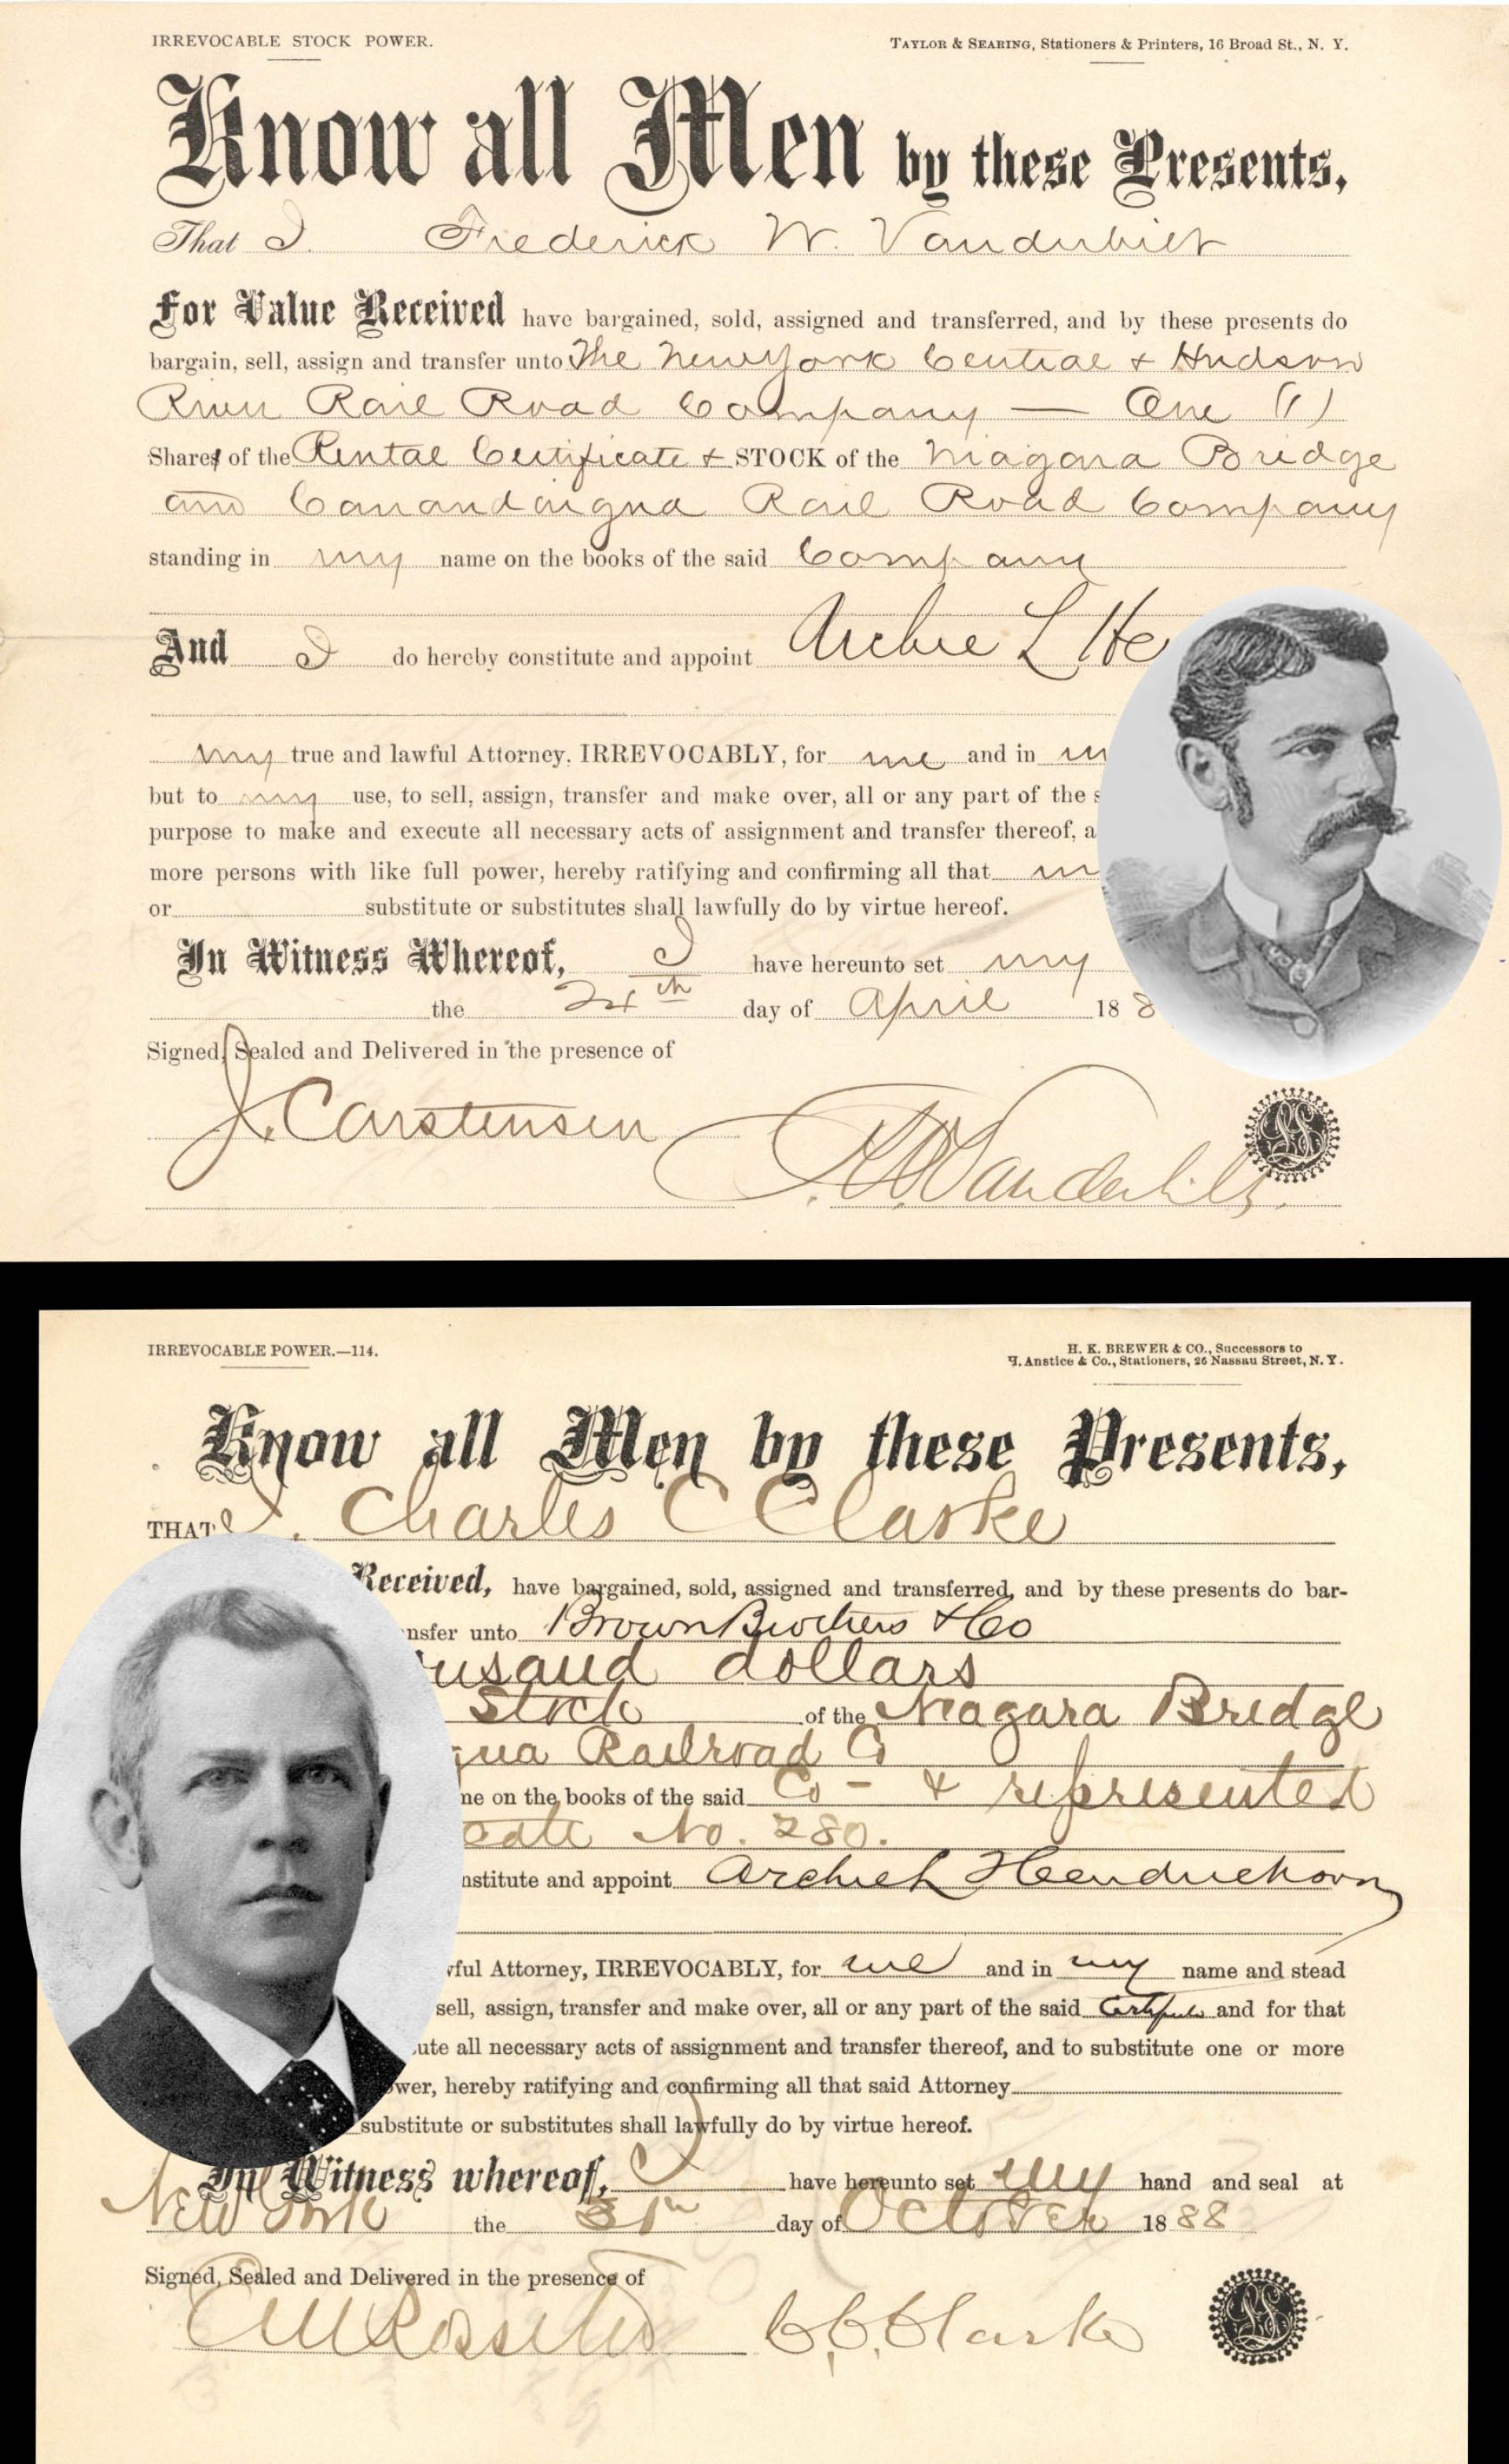 IRREVOCABLE STOCK POWER.
TAYLOR & SEARING, Stationers & Printers, 16 Broad St., N. Y.
Know all Men by these Presents,
That I. Frederick W. Vanderbilt
For Value Received have bargained, sold, assigned and transferred, and by these presents do
bargain, sell, assign and transfer unto The New York Central & Hudson
River Rail Road Company — One (1)
Shares of the Rental Certificate & STOCK of the Niagara Bridge
and Canandaigua Rail Road Company
standing in my name on the books of the said Company
And I do hereby constitute and appoint Archie L He
my true and lawful Attorney, IRREVOCABLY, for me and in m
but to my use, to sell, assign, transfer and make over, all or any part of the s
purpose to make and execute all necessary acts of assignment and transfer thereof, a
more persons with like full power, hereby ratifying and confirming all that m
or substitute or substitutes shall lawfully do by virtue hereof.
In Witness Whereof, I have hereunto set my
the 24th day of April 188
Signed, Sealed and Delivered in the presence of
J. Carstensen F. W. Vanderbilt
LS
IRREVOCABLE POWER.—114.
H. K. BREWER & CO., Successors to
T. Anstice & Co., Stationers, 26 Nassau Street, N. Y.
Know all Men by these Presents,
THAT I. Charles C Clarke
Received, have bargained, sold, assigned and transferred, and by these presents do bar-
nsfer unto Brown Brothers & Co
usand dollars
Stock of the Niagara Bridge
gua Railroad Co
me on the books of the said Co - & represented
cate No. 280.
nstitute and appoint Archie L Hendrickson
wful Attorney, IRREVOCABLY, for me and in my name and stead
sell, assign, transfer and make over, all or any part of the said Certificate and for that
ute all necessary acts of assignment and transfer thereof, and to substitute one or more
ower, hereby ratifying and confirming all that said Attorney
substitute or substitutes shall lawfully do by virtue hereof.
In Witness whereof, I have hereunto set my hand and seal at
New York the day of October 1888
Signed, Sealed and Delivered in the presence of
C. C. Clarke
LS